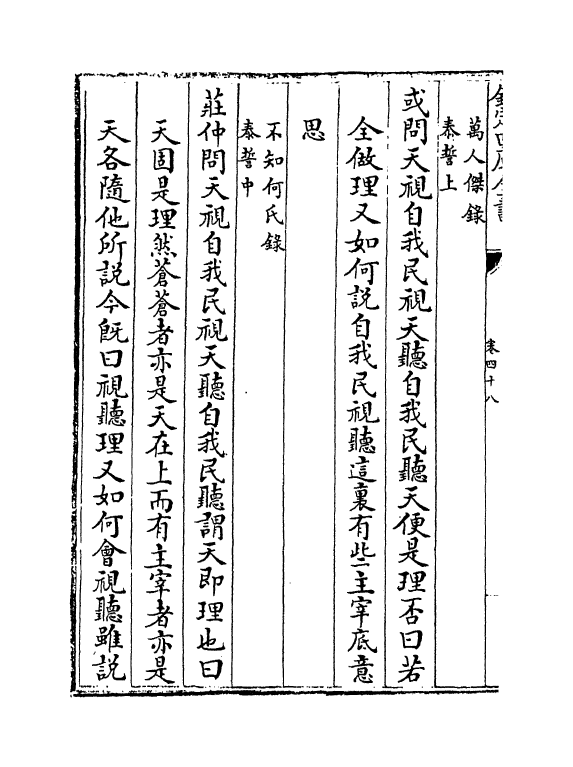 卷四十八
萬人傑錄
泰誓上
或問天視自我民視天聽自我民聽天便是理否曰若
全做理又如何說自我民視聽這裏有些主宰底意
思
不知何氏錄
泰誓中
莊仲問天視自我民視天聽自我民聽謂天即理也曰
天固是理然蒼蒼者亦是天在上而有主宰者亦是
天各隨他所說今既曰視聽理又如何會視聽雖說